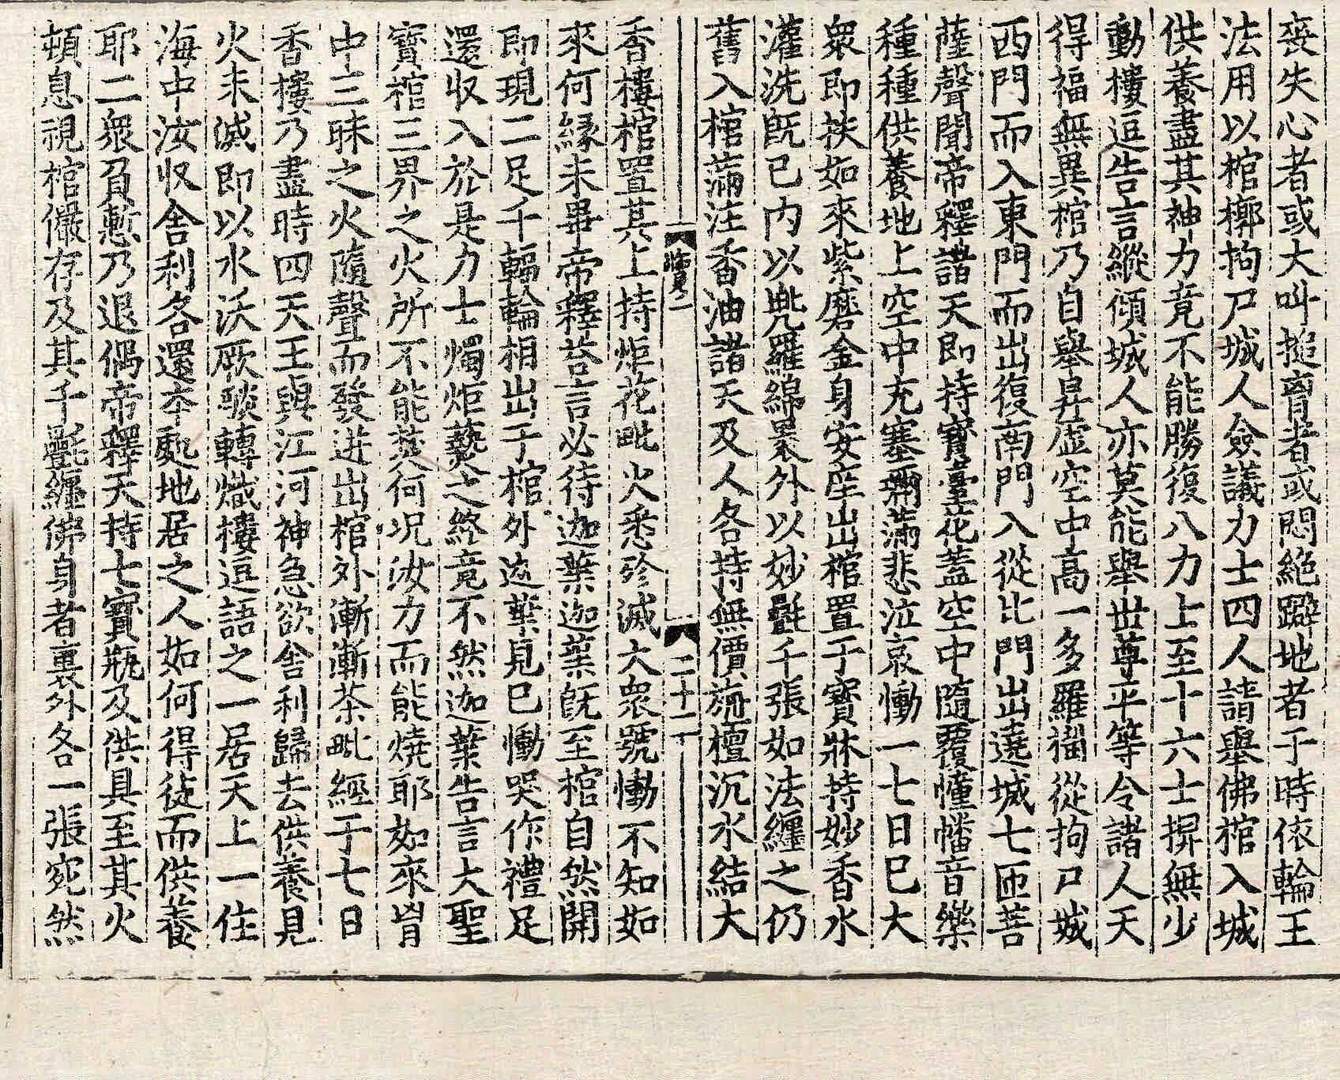 喪失心者或大叫搥胷者或悶絶躃地者于時依輪王
法用以棺槨拘尸城人僉議力士四人請舉佛棺入城
供養盡其神力竟不能勝復八力上至十六士舁無少
動樓逗告言縱傾城人亦莫能舉世尊平等令諸人天
得福無異棺乃自舉昇虛空中高一多羅樹從拘尸城
西門而入東門而出復南門入從北門出遶城七匝菩
薩聲聞帝釋諸天即持寶臺花蓋空中隨覆幢幡音樂
種種供養地上空中充塞彌滿悲泣哀慟一七日已大
衆即扶如來紫磨金身安座出棺置于寶牀持妙香水
灌洗旣已內以兠羅綿褁外以妙㲲千張如法纏之仍
舊入棺滿注香油諸天及人各持無價旃檀沉水結大
二十二
香樓棺置其上持炬花毗火悉殄滅大衆號慟不知如
來何緣未畢帝釋荅言必待迦葉迦葉旣至棺自然開
即現二足千輻輪相出于棺外迦葉見已慟哭作禮足
還收入於是力士燭炬爇之終竟不然迦葉告言大聖
寶棺三界之火所不能爇何況汝力而能燒耶如來胷
中三昧之火隨聲而發迸出棺外漸漸茶毗經于七日
香樓乃盡時四天王與江河神急欲舍利歸去供養見
火未滅即以水沃厥𦦨轉熾樓逗語之一居天上一住
海中汝收舍利各還本處地居之人如何得徒而供養
耶二衆負慙乃退偶帝釋天持七寶瓶及供具至其火
頓息視棺儼存及其千㲲纏佛身者裏外各一張宛然